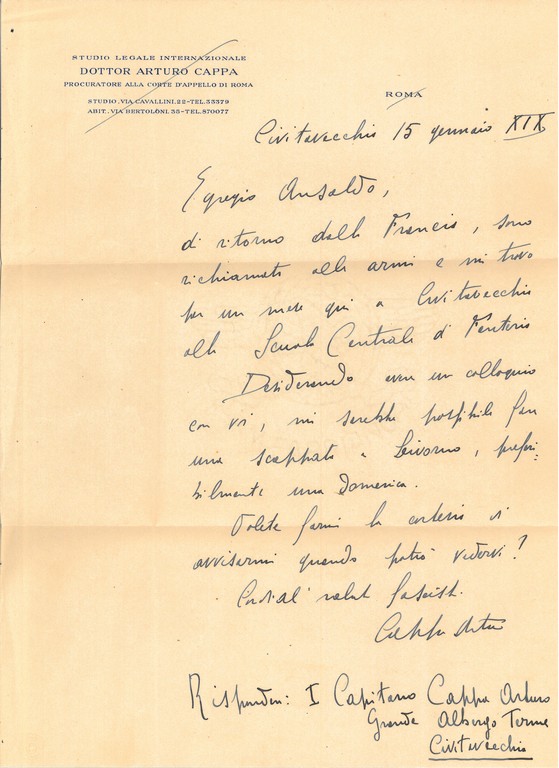 STUDIO LEGALE INTERNAZIONALE
DOTTOR ARTURO CAPPA
PROCURATORE ALLA CORTE D'APPELLO DI ROMA
STUDIO. VIA CAVALLINI. 22 - TEL. 33379
ABIT. VIA BERTOLONI. 35 - TEL. 870077
ROMA
Civitavecchia 15 gennaio XIX
Egregio Ansaldo,
di ritorno dalla Francia, sono
richiamato alle armi e mi trovo
per un mese qui a Civitavecchia
alla Scuola Centrale di Fanteria
Desiderando avere un colloquio
con voi, mi sarebbe possibile fare
una scappata a Livorno, preferi=
bilmente una Domenica.
Volete farmi la cortesia di
avvisarmi quando potrò vedervi?
Cordiali saluti fascisti.
Cappa Arturo
Rispondere: I Capitano Cappa Arturo
Grande Albergo Terme
Civitavecchia